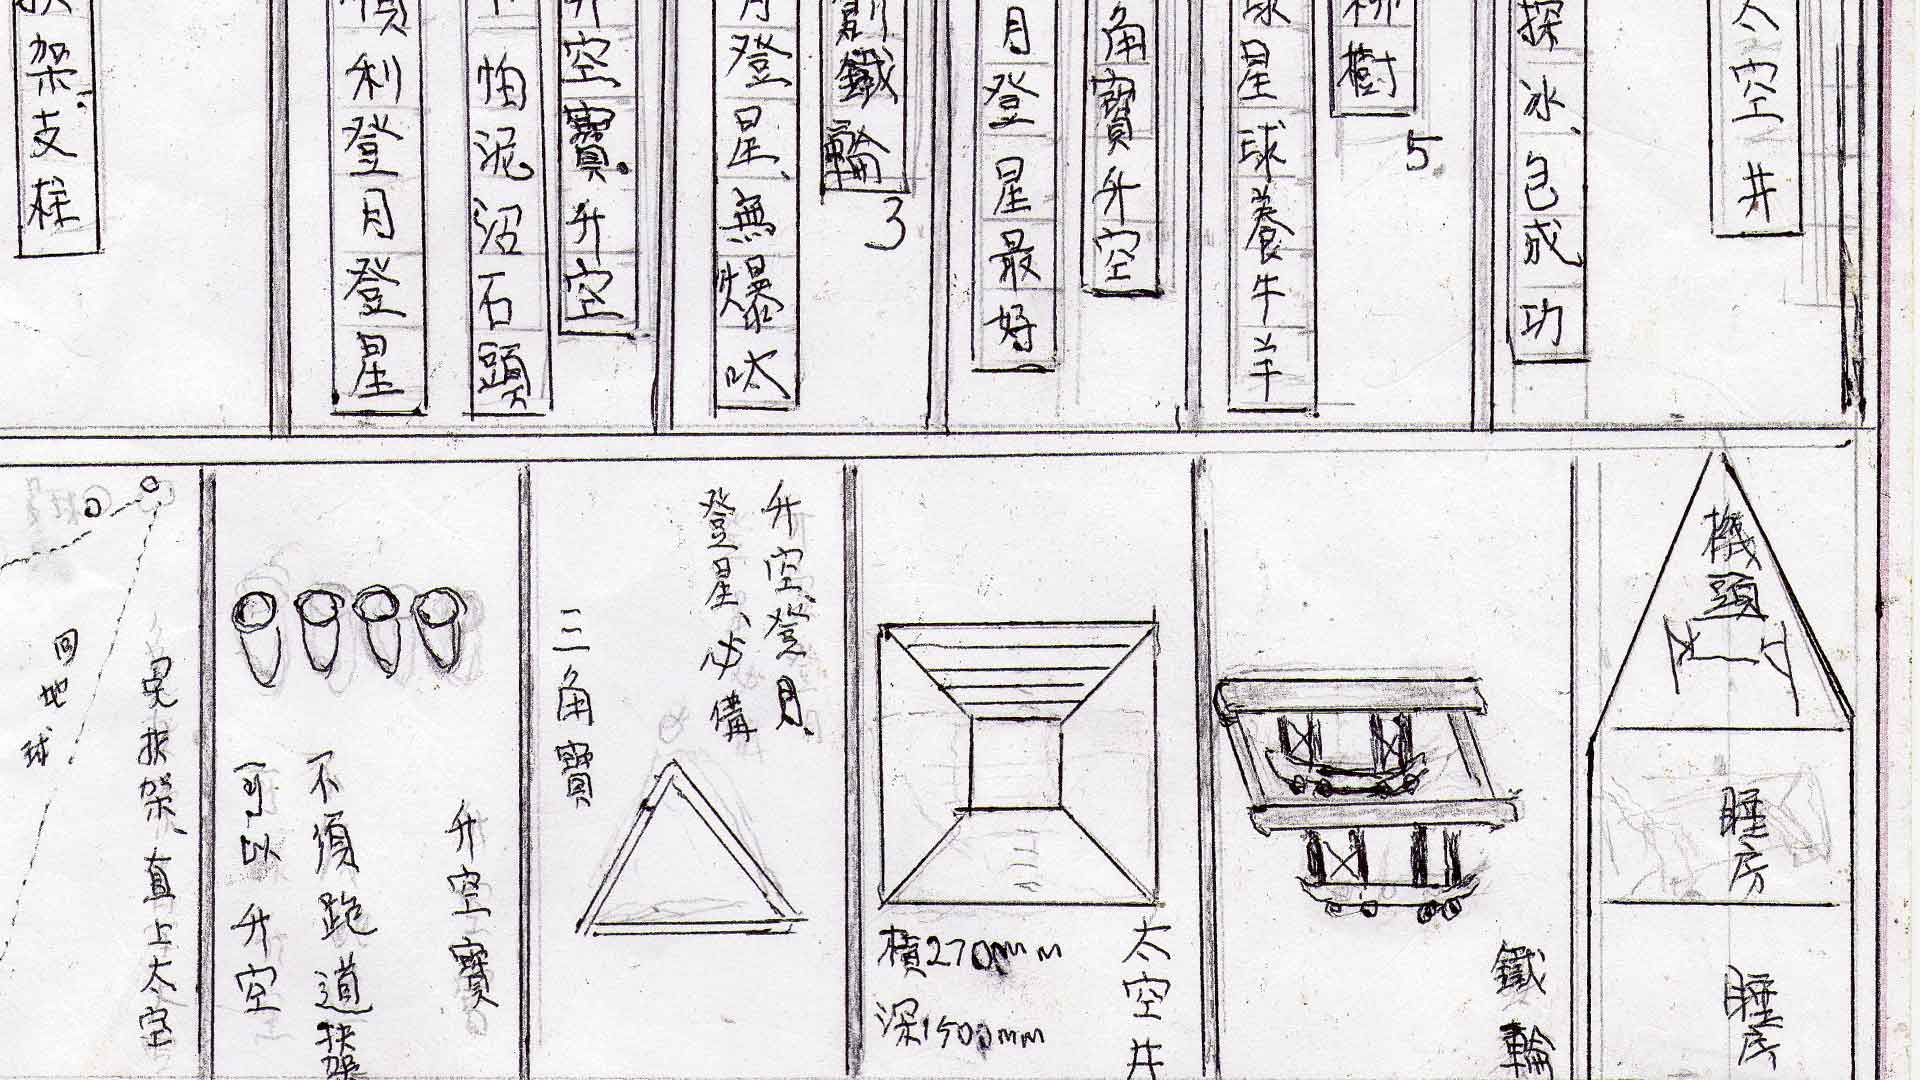 太空井
探冰包成功
柳樹
5
球星球養牛羊
角寶升空
月登星最好
創鐵輪
3
月登星、無爆呔
升空寶升空
怕泥沼石頭
順利登月登星
扶架支柱
機頭
睡房
睡房
鐵輪
太空井
橫270mm
深1500mm
升空、登月、
登星、必備
三角寶
升空寶
不須跑道扶架
可以升空
免扶架、直上太空
回地球